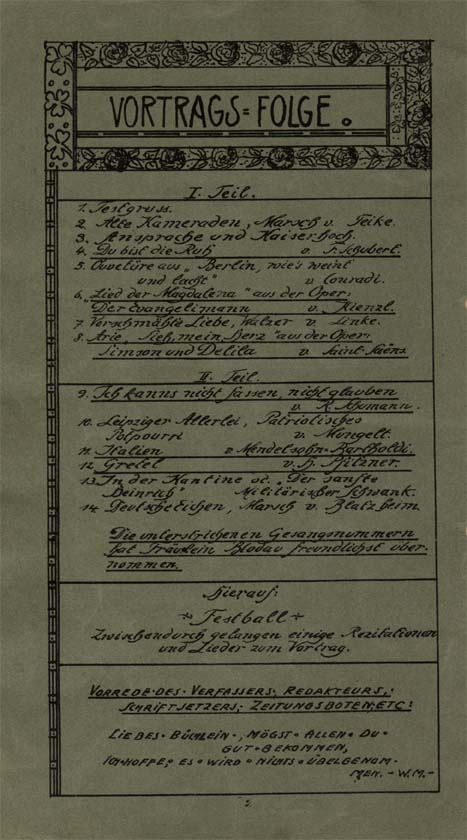 VORTRAGS=FOLGE.
I. Teil.
1. Festgruss.
2. Alte Kameraden, Marsch v. Teike.
3. Ansprache und Kaiserhoch.
4. Du bist die Ruh' v. F. Schubert.
5. Ouvetüre aus „Berlin, wie's weint
und lacht" v Conradi.
6. Lied der Magdalena" aus der Oper:
"Der Evangelimann v. Kienzl.
7. Verschmähte Liebe, Walzer v. Linke.
8. Arie „Sieh, mein Herz" aus der Oper:
Simson und Delila v. Saint-Saëns
II. Teil.
9. Ich kanns nicht fassen, nicht glauben
v. R. Schumann.
10. Leipziger Allerlei, Patriotisches
Potpourri v. Müngelt.
11. Italien v. Mendelsohn-Bartholdi.
12. Gretel v. H. Pfitzner.
13. In der Kantine od. „Der sanfte
Heinrich" Militärischer Schwank.
14. Deutschetichen, Marsch v. Blatzheim
Die unterstrichenen Gesangsnummern
hat Fräulein Blodau freundlichst über-
nommen.
Hierauf:
Festball
Zwischendurch gelangen einige Rezitationen
und Lieder zum Vortrag.
VORREDE DES VERFASSERS, REDAKTEURS,
SCHRIFTSETZERS, ZEITUNGSBOTEN ETC:
LIEBES BÜCHLEIN, MÖGST ALLEN DU
GUT BEKOMMEN,
ICH HOFFE, ES WIRD NICHTS ÜBELGENOM-
MEN. - W.M. -
2.